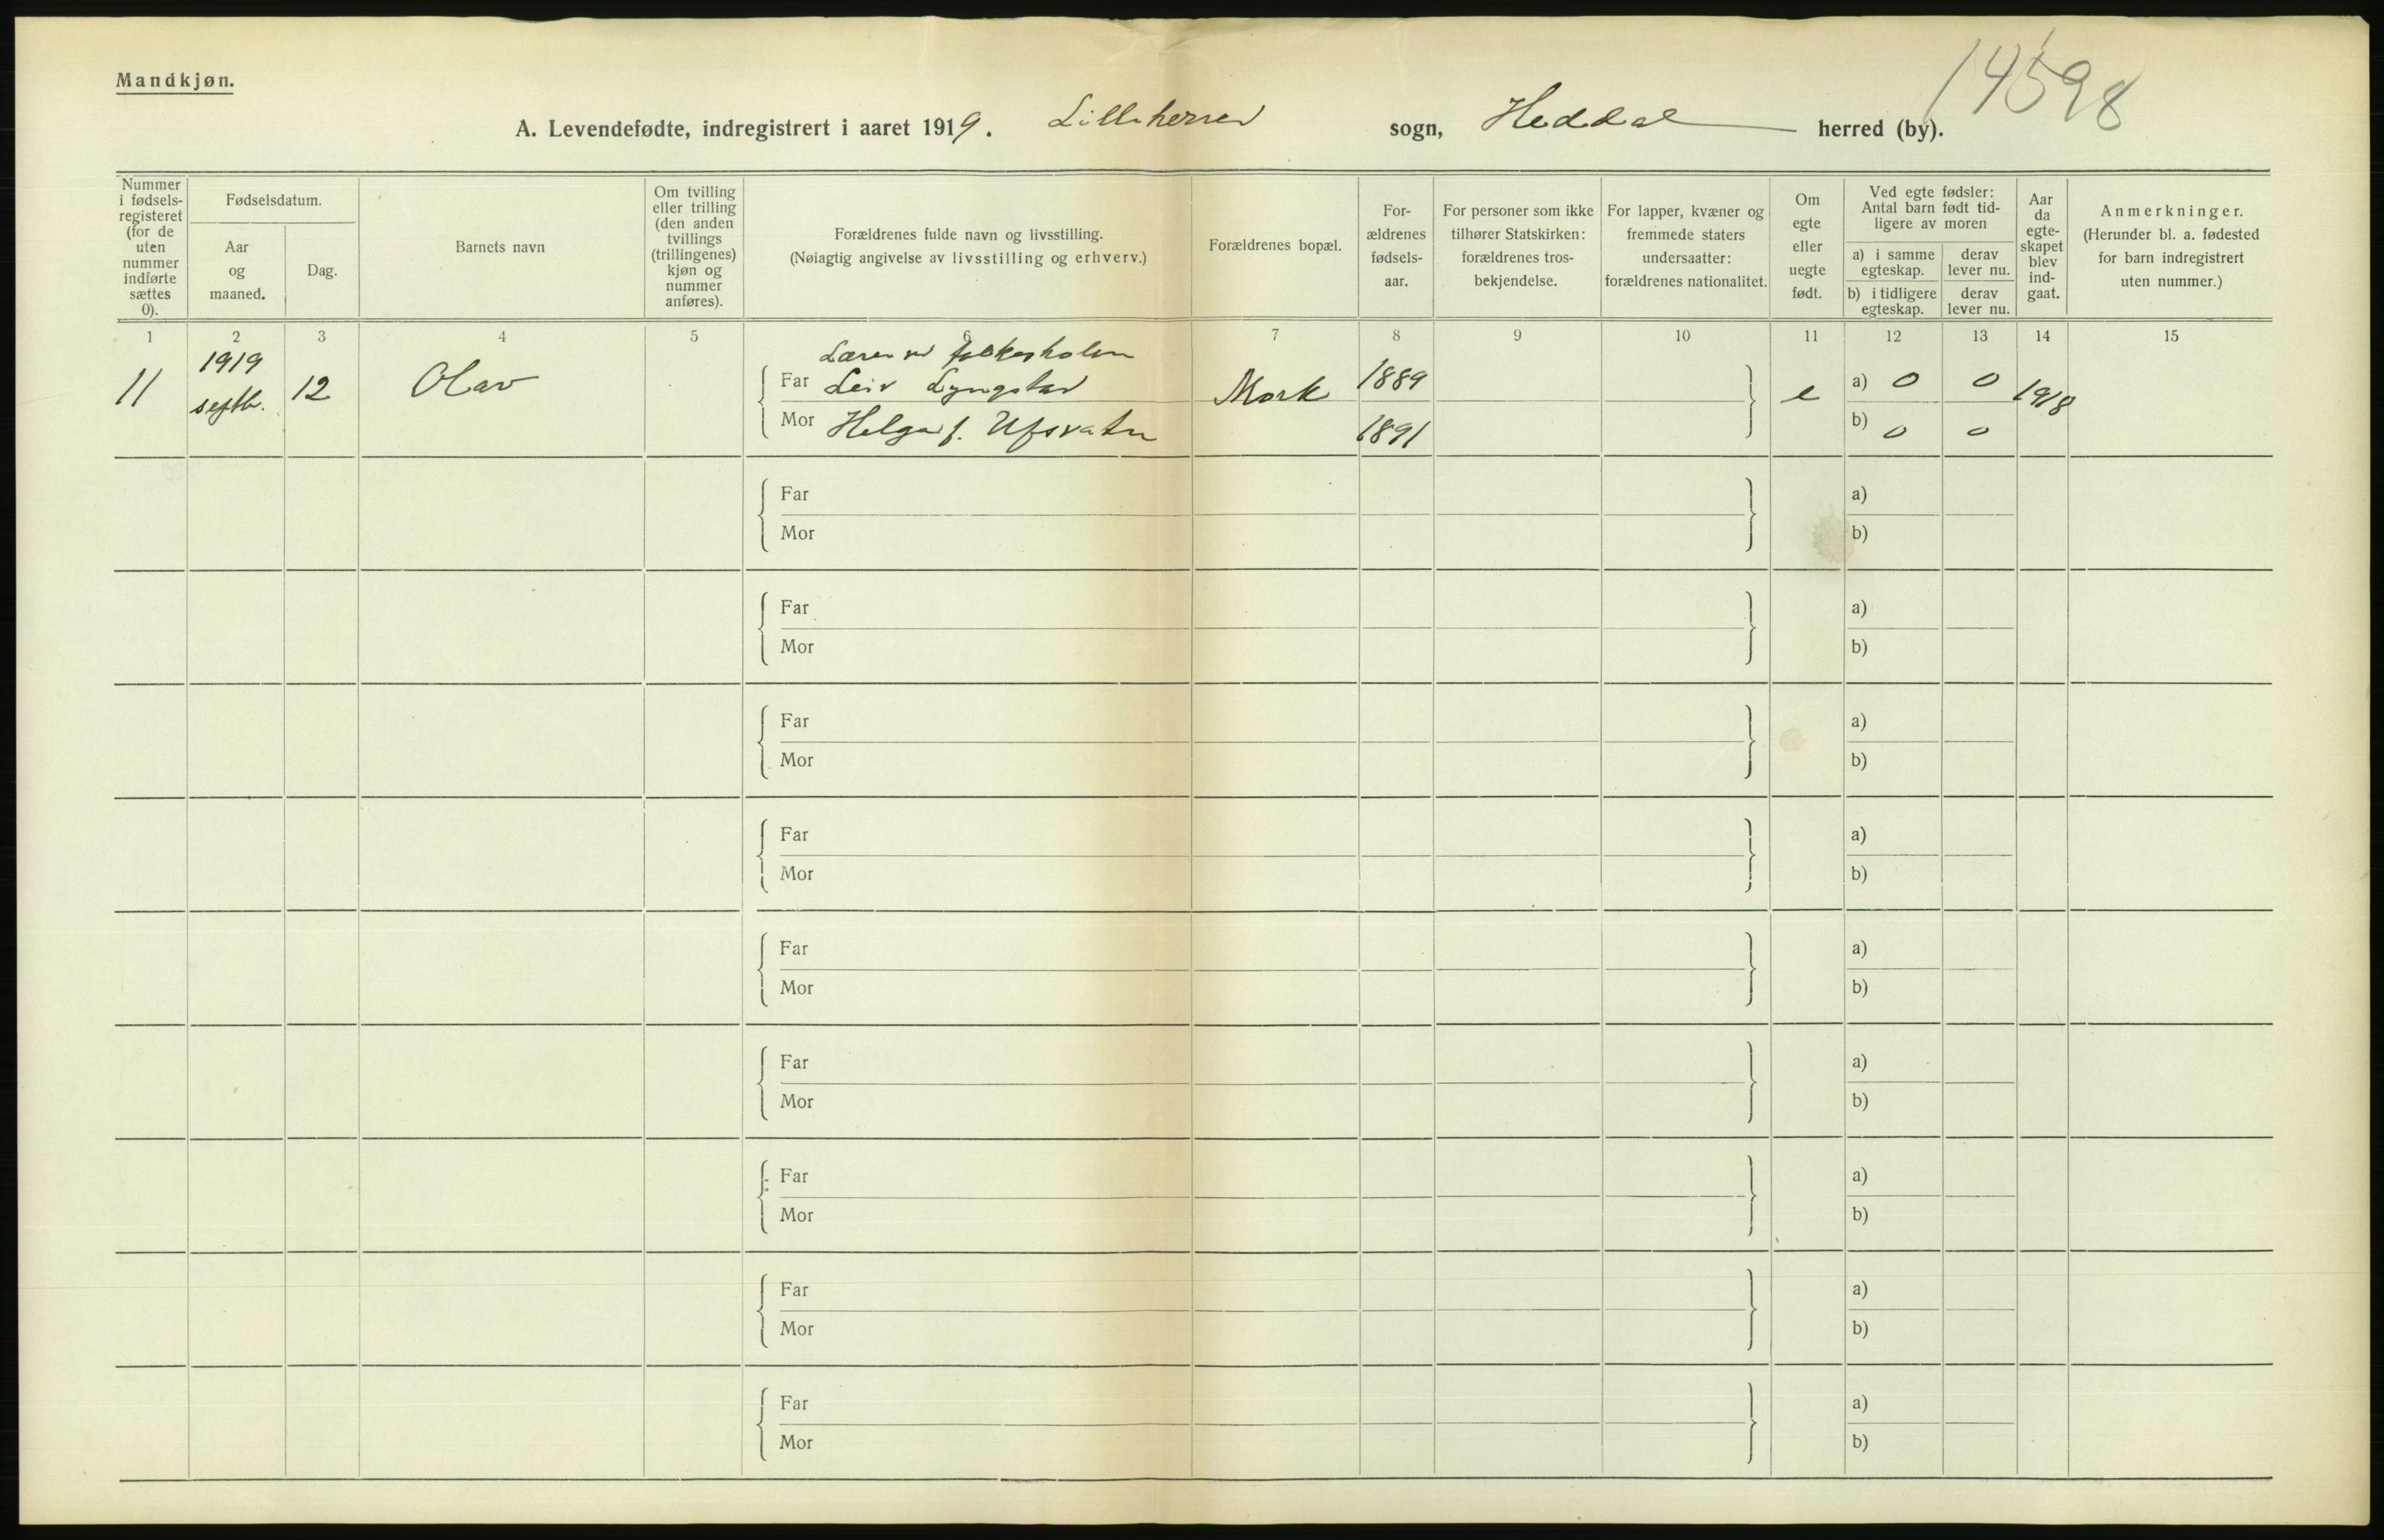 Mandkjøn.
14598
A. Levendefødte, indregistrert i aaret 1919. Lilleherred sogn, Heddal herred (by).
Nummer i fødsels-registeret (for de uten nummer indførte sættes 0).
Fødselsdatum.
Aar og maaned.
Dag.
Barnets navn
Om tvilling eller trilling (den anden tvillings (trillingenes) kjøn og nummer anføres).
Forældrenes fulde navn og livsstilling.
(Nøiagtig angivelse av livsstilling og erhverv.)
Forældrenes bopæl.
For-ældrenes fødsels-aar.
For personer som ikke tilhører Statskirken: forældrenes tros-bekjendelse.
For lapper, kvæner og fremmede staters undersaatter: forældrenes nationalitet.
Om egte eller uegte født.
Ved egte fødsler: Antal barn født tid-ligere av moren
a) i samme egteskap.
derav lever nu.
b) i tidligere egteskap.
derav lever nu.
Aar da egte-skapet blev ind-gaat.
Anmerkninger.
(Herunder bl. a. fødested for barn indregistrert uten nummer.)
1 2 3 4 5 6 7 8 9 10 11 12 13 14 15
1919
Lærer ved
11 septb. 12 Olav Far Leiv Lyngstad Mork 1889 e a) 0 0 1918
Mor Helga f. Ufsvatn 1891 b) 0 0
Far a)
Mor b)
Far a)
Mor b)
Far a)
Mor b)
Far a)
Mor b)
Far a)
Mor b)
Far a)
Mor b)
Far a)
Mor b)
Far a)
Mor b)
Far a)
Mor b)